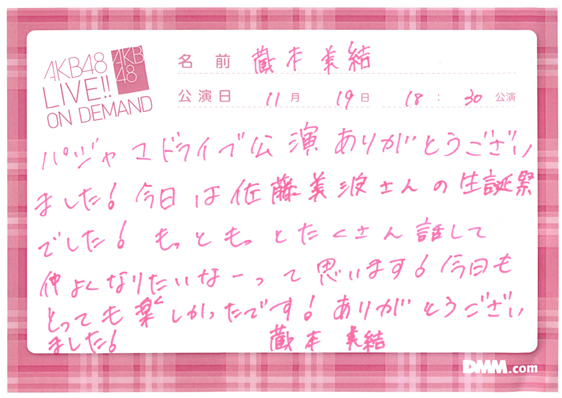 AKB48
LIVE!!
ON DEMAND
AKB
48
名前 蔵本美結
公演日 11月 19日 18:30 公演
パジャマドライブ公演ありがとうござい
ました！今日は佐藤美波さんの生誕祭
でした！もっともっとたくさん話して
仲よくなりたいなーって思います！今日も
とっても楽しかったです！ありがとうござい
ました！ 蔵本美結
DMM.com